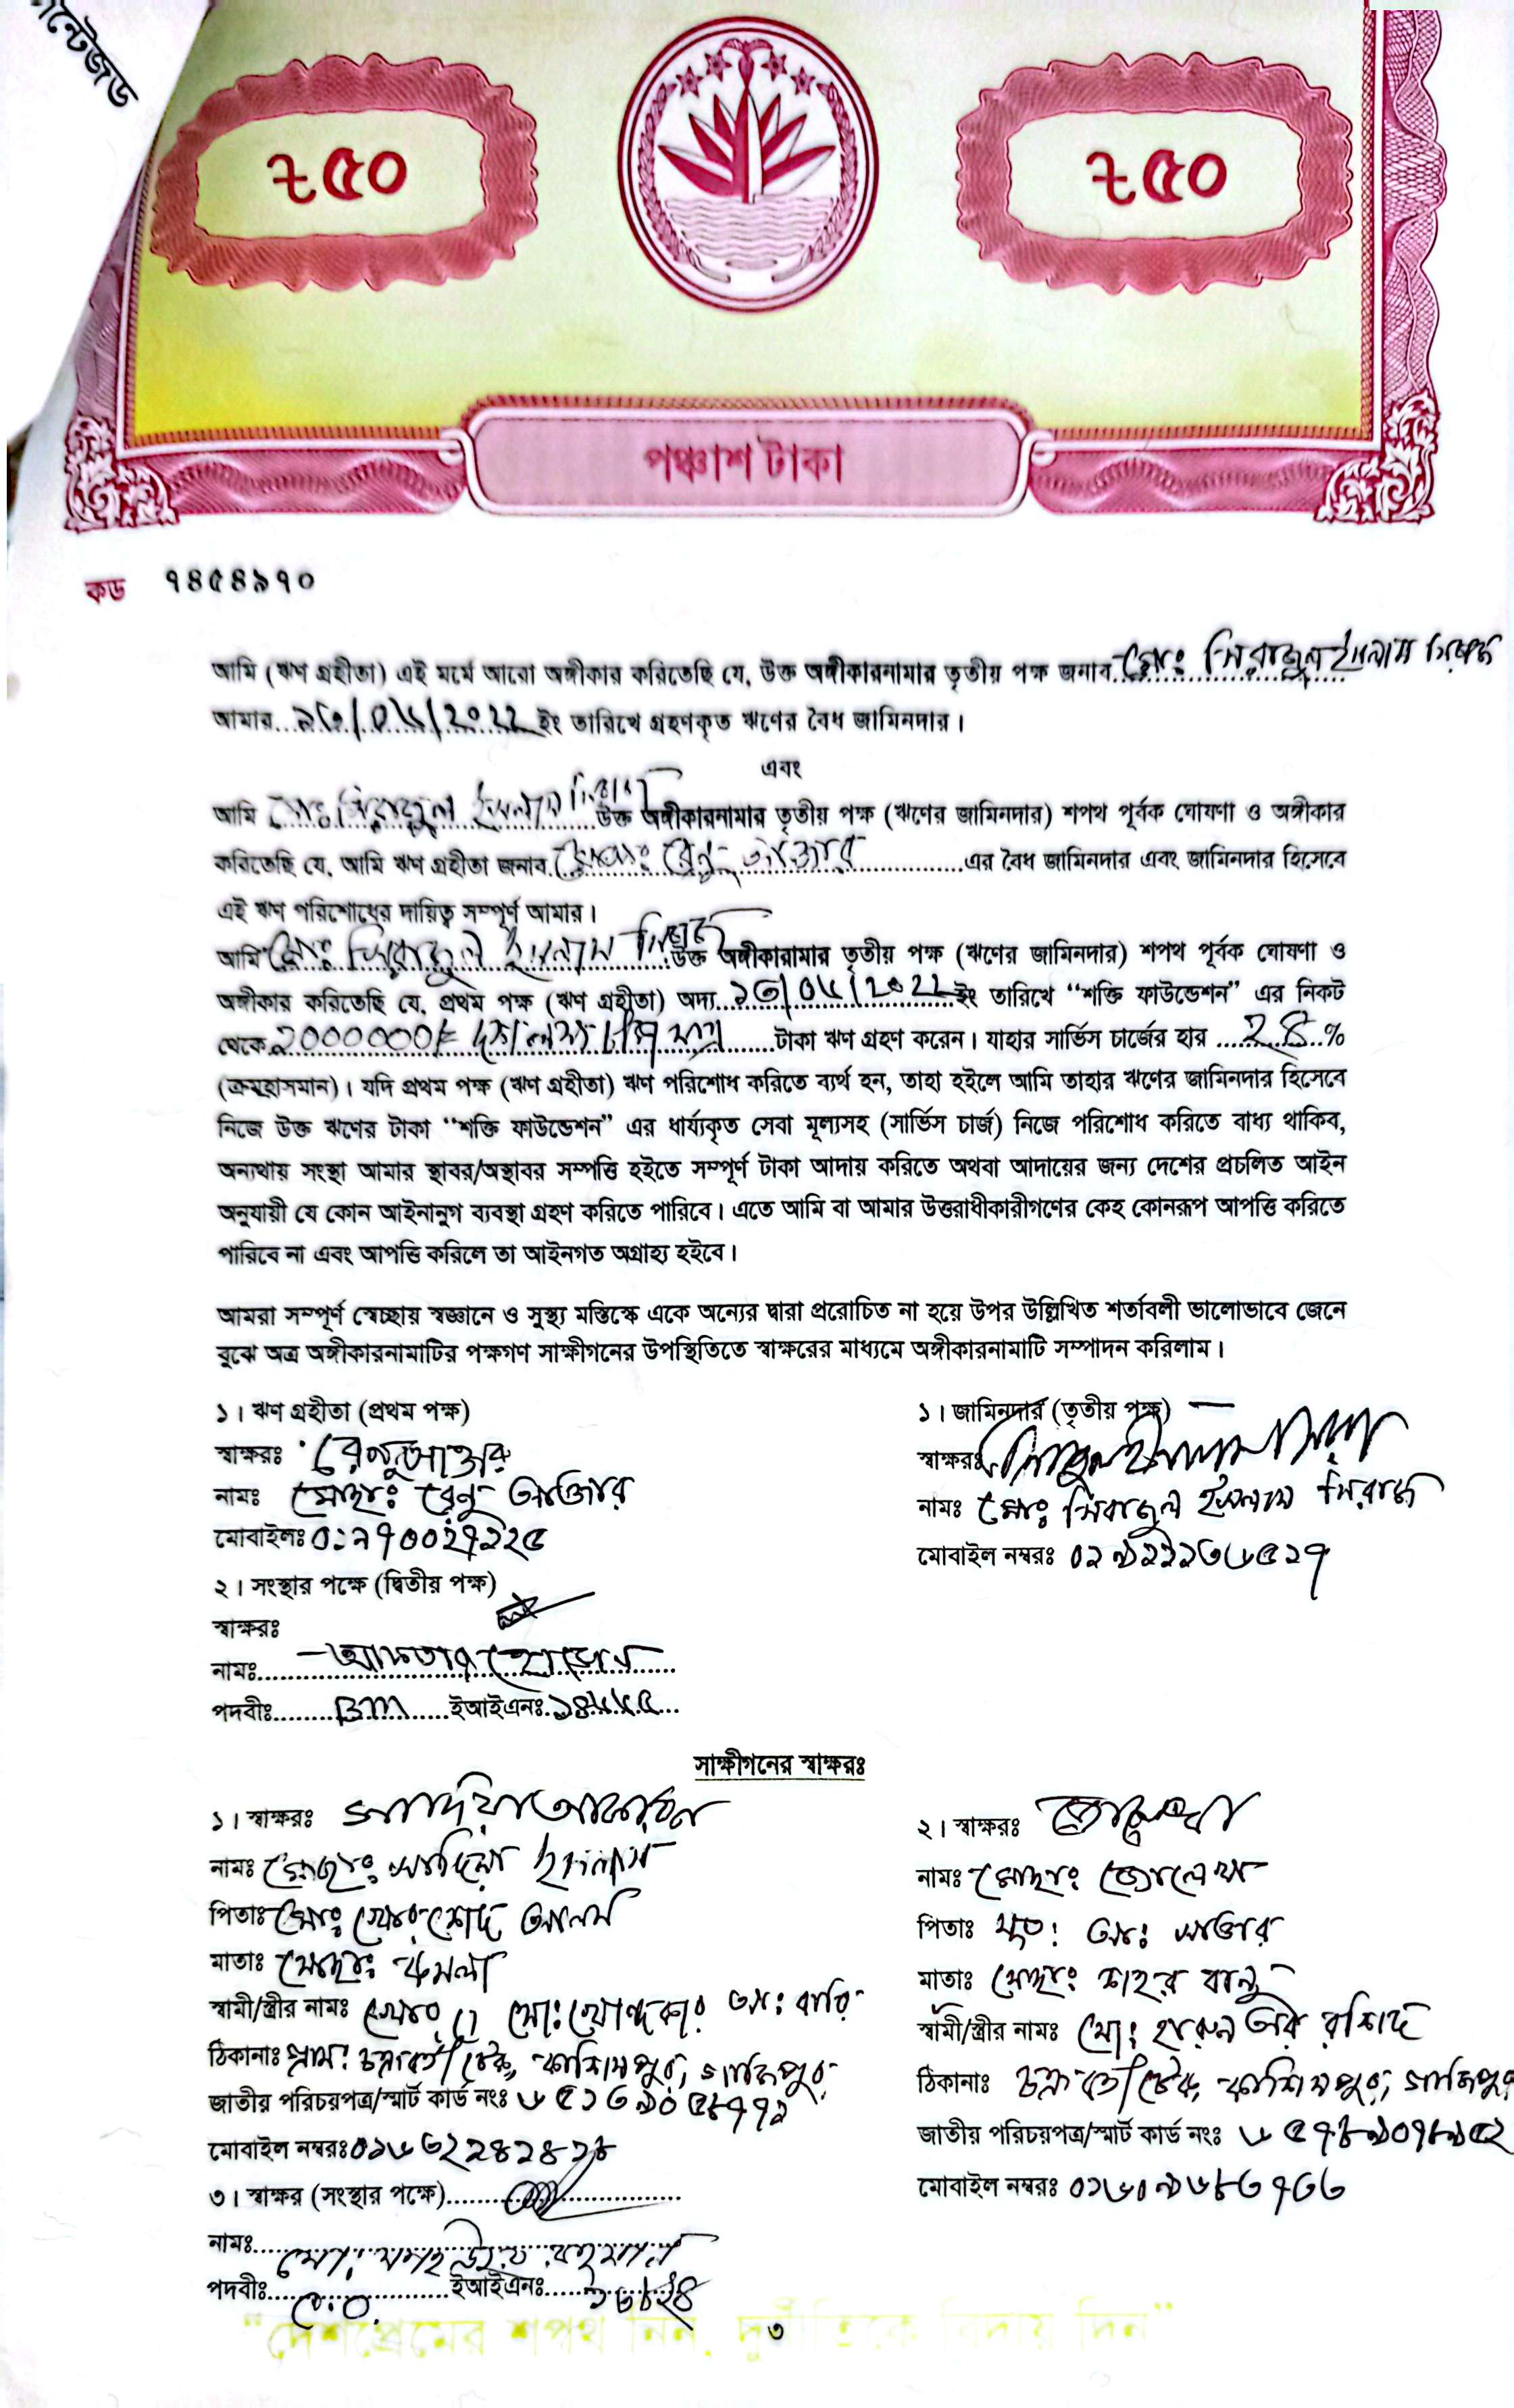 ন্টেজড
৳৫০
৳৫০
পঞ্চাশ টাকা
কড ৭৪৫৪৯৭০
আমি (ঋণ গ্রহীতা) এই মর্মে আরো অঙ্গীকার করিতেছি যে, উক্ত অঙ্গীকারনামার তৃতীয় পক্ষ জনাব মোঃ সিরাজুল ইসলাম সিরাজ
আমার ১৩/০৬/২০২২ ইং তারিখে গ্রহণকৃত ঋণের বৈধ জামিনদার।
এবং
আমি মোঃ সিরাজুল ইসলাম সিরাজ উক্ত অঙ্গীকারনামার তৃতীয় পক্ষ (ঋণের জামিনদার) শপথ পূর্বক ঘোষণা ও অঙ্গীকার
করিতেছি যে, আমি ঋণ গ্রহীতা জনাব মোছাঃ রেনু আক্তার এর বৈধ জামিনদার এবং জামিনদার হিসেবে
এই ঋণ পরিশোধের দায়িত্ব সম্পূর্ণ আমার।
আমি মোঃ সিরাজুল ইসলাম সিরাজ উক্ত অঙ্গীকারামার তৃতীয় পক্ষ (ঋণের জামিনদার) শপথ পূর্বক ঘোষণা ও
অঙ্গীকার করিতেছি যে, প্রথম পক্ষ (ঋণ গ্রহীতা) অদ্য ১৩/০৬/২০২২ ইং তারিখে “শক্তি ফাউন্ডেশন” এর নিকট
থেকে টাকা ঋণ গ্রহণ করেন। যাহার সার্ভিস চার্জের হার ২৪ %
(ক্রমহাসমান)। যদি প্রথম পক্ষ (ঋণ গ্রহীতা) ঋণ পরিশোধ করিতে ব্যর্থ হন, তাহা হইলে আমি তাহার ঋণের জামিনদার হিসেবে
নিজে উক্ত ঋণের টাকা “শক্তি ফাউন্ডেশন” এর ধার্য্যকৃত সেবা মূল্যসহ (সার্ভিস চার্জ) নিজে পরিশোধ করিতে বাধ্য থাকিব,
অন্যথায় সংস্থা আমার স্থাবর/অস্থাবর সম্পত্তি হইতে সম্পূর্ণ টাকা আদায় করিতে অথবা আদায়ের জন্য দেশের প্রচলিত আইন
অনুযায়ী যে কোন আইনানুগ ব্যবস্থা গ্রহণ করিতে পারিবে। এতে আমি বা আমার উত্তরাধীকারীগণের কেহ কোনরূপ আপত্তি করিতে
পারিবে না এবং আপত্তি করিলে তা আইনগত অগ্রাহ্য হইবে।
আমরা সম্পূর্ণ স্বেচ্ছায় স্বজ্ঞানে ও সুস্থ্য মস্তিস্কে একে অন্যের দ্বারা প্ররোচিত না হয়ে উপর উল্লিখিত শর্তাবলী ভালোভাবে জেনে
বুঝে অত্র অঙ্গীকারনামাটির পক্ষগণ সাক্ষীগনের উপস্থিতিতে স্বাক্ষরের মাধ্যমে অঙ্গীকারনামাটি সম্পাদন করিলাম।
১। ঋণ গ্রহীতা (প্রথম পক্ষ)
স্বাক্ষরঃ রেনু আক্তার
নামঃ মোছাঃ রেনু আক্তার
মোবাইলঃ
২। সংস্থার পক্ষে (দ্বিতীয় পক্ষ)
স্বাক্ষরঃ
নামঃ হোসেন
পদবীঃ BM ইআইএনঃ ১৪৬৬৫
১। জামিনদার (তৃতীয় পক্ষ)
স্বাক্ষরঃ সিরাজুল ইসলাম সিরাজ
নামঃ মোঃ সিরাজুল ইসলাম সিরাজ
মোবাইল নম্বরঃ
সাক্ষীগনের স্বাক্ষরঃ
১। স্বাক্ষরঃ
নামঃ মোছাঃ সাদিয়া ইসলাম
পিতাঃ মোঃ খোরশেদ আলম
মাতাঃ মোছাঃ কমলা
স্বামী/স্ত্রীর নামঃ মোঃ খোন্দকার আঃ বারি
ঠিকানাঃ গ্রামঃ চক্রবর্তী টেক, কাশিমপুর, গাজিপুর
জাতীয় পরিচয়পত্র/স্মার্ট কার্ড নংঃ ৬৫১৩৯০৫৮৭৭২
মোবাইল নম্বরঃ ০১৬৩২২৪২৪২৪
৩। স্বাক্ষর (সংস্থার পক্ষে)
নামঃ মোঃ রহমান
পদবীঃ ইআইএনঃ
২। স্বাক্ষরঃ জোলেখা
নামঃ মোছাঃ জোলেখা
পিতাঃ মৃতঃ আঃ সাত্তার
মাতাঃ মোছাঃ শাহর বানু
স্বামী/স্ত্রীর নামঃ মোঃ হারুন অর রশিদ
ঠিকানাঃ চক্রবর্তী টেক, কাশিমপুর, গাজিপুর
জাতীয় পরিচয়পত্র/স্মার্ট কার্ড নংঃ ৬৫৭৪৯০৭৮৯৫২
মোবাইল নম্বরঃ ০১৬০৯৬৮৩৭৩৩
“দেশপ্রেমের শপথ নিন, দুর্নীতিকে বিদায় দিন”
৩